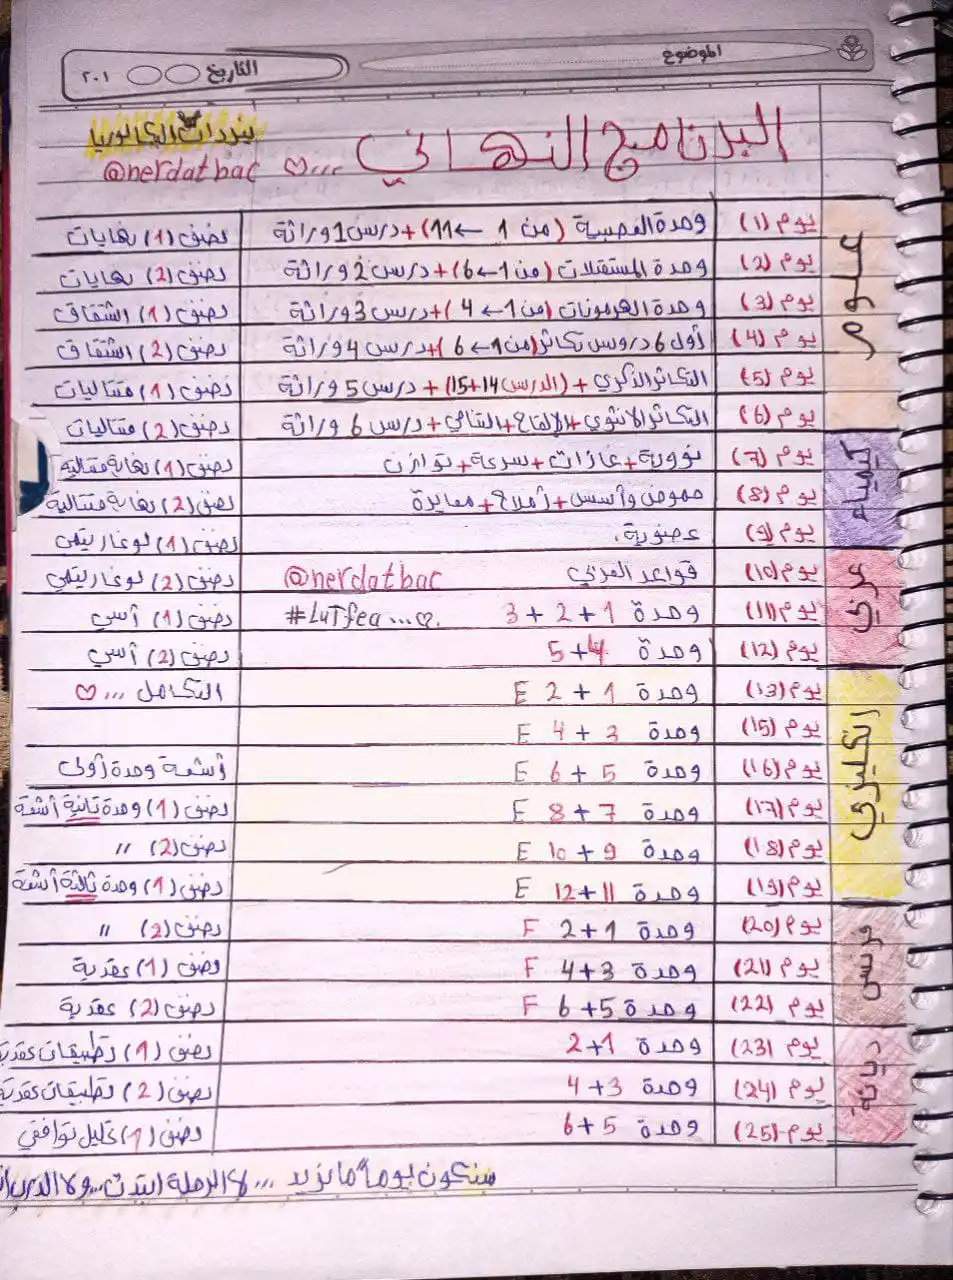 الموضوع
التاريخ ٢٠١
البرنامج النهائي
نيردات البكالوريا
@nerdatbac ♡...
علوم
يوم (1) وحدة العصبية (من 1 ← 11) + درس 1 وراثة نصف (1) نهايات
يوم (2) وحدة المستقبلات (من 1 ← 6) + درس 2 وراثة نصف (2) نهايات
يوم (3) وحدة الهرمونات (من 1 ← 4) + درس 3 وراثة نصف (1) اشتقاق
يوم (4) أول 6 دروس تكاثر (من 1 ← 6) + درس 4 وراثة نصف (2) اشتقاق
يوم (5) التكاثر الذكري + (الدرس 14+15) + درس 5 وراثة نصف (1) متتاليات
يوم (6) التكاثر الانثوي + الإلقاح + التنامي + درس 6 وراثة نصف (2) متتاليات
كيمياء
يوم (7) نووية + غازات + سرعة + توازن نصف (1) نهاية متتالية
يوم (8) حموض وأسس + أملاح + معايرة نصف (2) نهاية متتالية
يوم (9) عضوية. نصف (1) لوغاريتمي
عربي
يوم (10) قواعد العربي @nerdatbac نصف (2) لوغاريتمي
يوم (11) وحدة 1 + 2 + 3 #LuTfea...♡. نصف (1) أسي
يوم (12) وحدة 4+5 نصف (2) أسي
انكليزي
يوم (13) وحدة 1 + 2 E التكامل ...♡
يوم (15) وحدة 3 + 4 E
يوم (16) وحدة 5 + 6 E أشعة وحدة أولى
يوم (17) وحدة 7 + 8 E نصف (1) وحدة ثانية أشعة
يوم (18) وحدة 9 + 10 E نصف (2) ״
يوم (19) وحدة 11 + 12 E نصف (1) وحدة ثالثة أشعة
فرنسي
يوم (20) وحدة 1 + 2 F نصف (2) ״
يوم (21) وحدة 3 + 4 F نصف (1) عقدية
يوم (22) وحدة 5 + 6 F نصف (2) عقدية
ديانة
يوم (23) وحدة 1+2 نصف (1) تطبيقات عقدية
يوم (24) وحدة 3+4 نصف (2) تطبيقات عقدية
يوم (25) وحدة 5 + 6 نصف (1) تحليل توافقي
سنكون يوماً ما نريد ... لا الرحلة ابتدت .. ولا الدرب